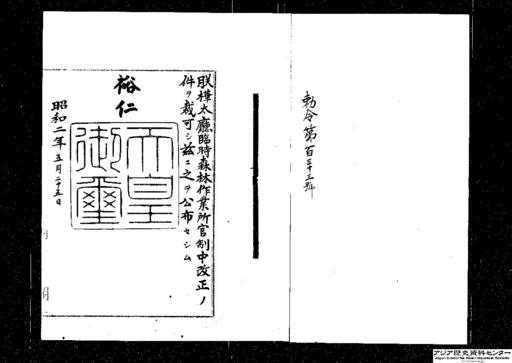 勅令第百三十三號
朕樺太廳臨時森林作業所官制中改正ノ
件ヲ裁可シ茲ニ之ヲ公布セシム
裕仁
天皇
御璽
昭和二年五月二十五日
アジア歴史資料センター
Japan Center for Asian Historical Records